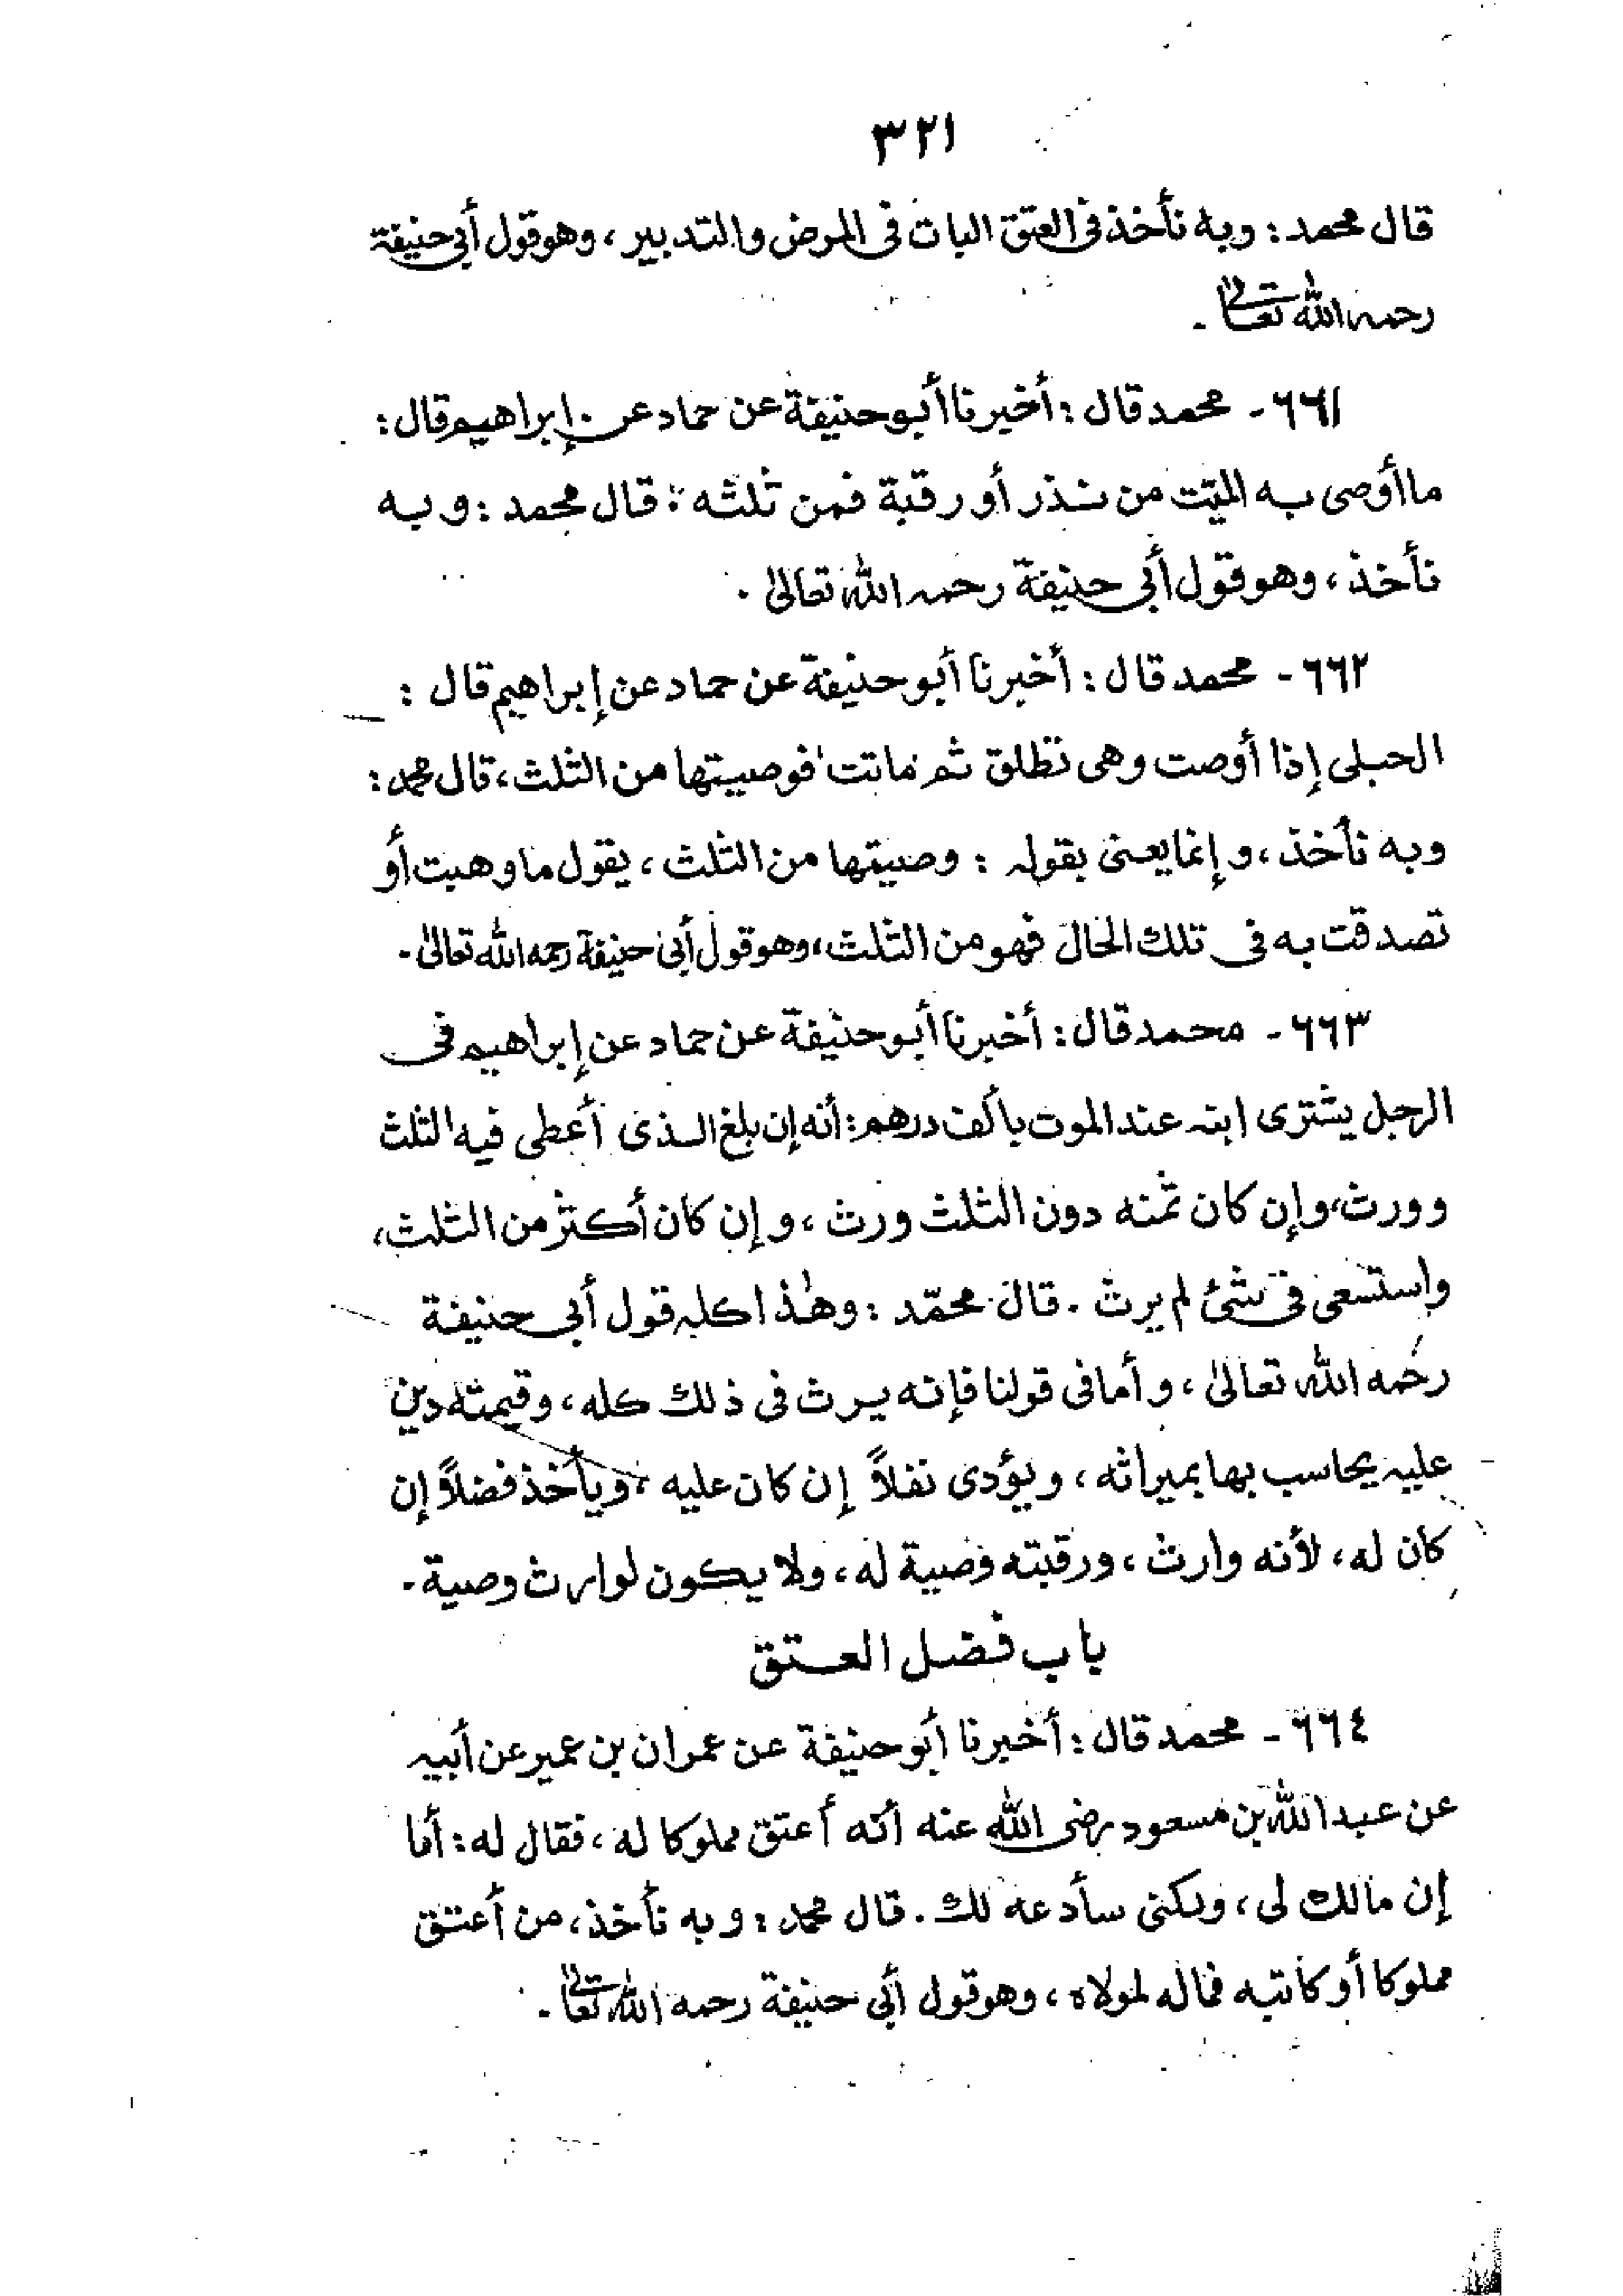 ٣٢١
قال محمد: وبه نأخذ في العتق البات في المرض والتدبير، وهو قول أبي حنيفة
رحمه الله تعالى -
٦٦١ - محمد قال: أخبرنا أبو حنيفة عن حماد عن إبراهيم قال:
ما أوصى به الميت من نذر أو رقبة فمن ثلثه: قال محمد: وبه
نأخذ، وهو قول أبي حنيفة رحمه الله تعالىٰ.
٦٦٢ - محمد قال: أخبرنا أبو حنيفة عن حماد عن إبراهيم قال:
الحبلى إذا أوصت وهي تطلق ثم ماتت فوصيتها من الثلث، قال محمد:
وبه نأخذ، وإنما يعني بقوله: وصيتها من الثلث، يقول ما وهبت أو
تصدقت به في تلك الحال فهو من الثلث، وهو قول أبي حنيفة رحمه الله تعالىٰ -
٦٦٣ - محمد قال: أخبرنا أبو حنيفة عن حماد عن إبراهيم في
الرجل يشترى ابنه عند الموت بألف درهم: أنه إن بلغ الذي أعطى فيه الثلث
وورث، وإن كان ثمنه دون الثلث ورث، وإن كان أكثر من الثلث،
واستسعى في شئ لم يرث. قال محمّد: وهٰذا كله قول أبي حنيفة
رحمه الله تعالىٰ، وأما في قولنا فإنه يرث في ذلك كله، وقيمته دين
عليه يحاسب بها بميراثه، ويؤدى نفلاً إن كان عليه، ويأخذ فضلاً إن
كان له، لأنه وارث، ورقبته وصية له، ولا يكون لوارث وصية -
باب فضل العتق
٦٦٤ - محمد قال: أخبرنا أبو حنيفة عن عمران بن عمير عن أبيه
عن عبد الله بن مسعود رضي الله عنه أنه أعتق مملوكا له، فقال له: أما
إن مالك لى، ولكنى سأدعه لك. قال محمد: وبه نأخذ، من أعتق
مملوكا أو كاتبه فماله لمولاه، وهو قول أبي حنيفة رحمه الله تعالىٰ -